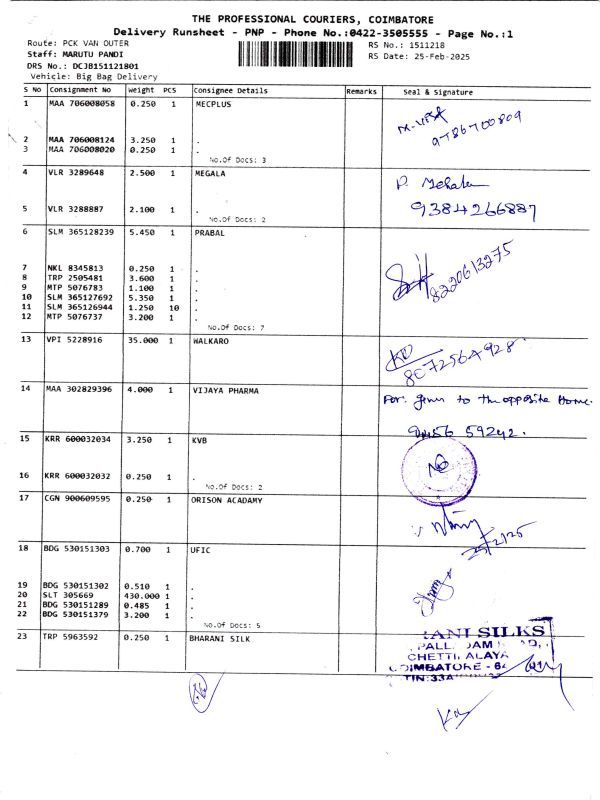 THE PROFESSIONAL COURIERS, COIMBATORE
Delivery Runsheet - PNP - Phone No.:0422-3505555 - Page No.:1
Route: PCK VAN OUTER RS No.: 1511218
Staff: MARUTU PANDI RS Date: 25-Feb-2025
DRS No.: DCJ8151121801
Vehicle: Big Bag Delivery
S No Consignment No Weight PCS Consignee Details Remarks Seal & Signature
1 MAA 706008058 0.250 1 MECPLUS
9786700809
2 MAA 706008124 3.250 1 .
3 MAA 706008020 0.250 1 .
No.Of Docs: 3
4 VLR 3289648 2.500 1 MEGALA
P.
5 VLR 3288887 2.100 1 . 9384266887
No.Of Docs: 2
6 SLM 365128239 5.450 1 PRABAL
8220613275
7 NKL 8345813 0.250 1 .
8 TRP 2505481 3.600 1 .
9 MTP 5076783 1.100 1 .
10 SLM 365127692 5.350 1 .
11 SLM 365126944 1.250 10 .
12 MTP 5076737 3.200 1 .
No.Of Docs: 7
13 VPI 5228916 35.000 1 WALKARO
8072564928
14 MAA 302829396 4.000 1 VIJAYA PHARMA
For. given to the opposite Home.
59242.
15 KRR 600032034 3.250 1 KVB
16 KRR 600032032 0.250 1 .
No.Of Docs: 2
17 CGN 900609595 0.250 1 ORISON ACADAMY
25/2/25
18 BDG 530151303 0.700 1 UFIC
19 BDG 530151302 0.510 1 .
20 SLT 305669 430.000 1 .
21 BDG 530151289 0.485 1 .
22 BDG 530151379 3.200 1 .
No.Of Docs: 5
23 TRP 5963592 0.250 1 BHARANI SILK
SILKS
COIMBATORE - 64